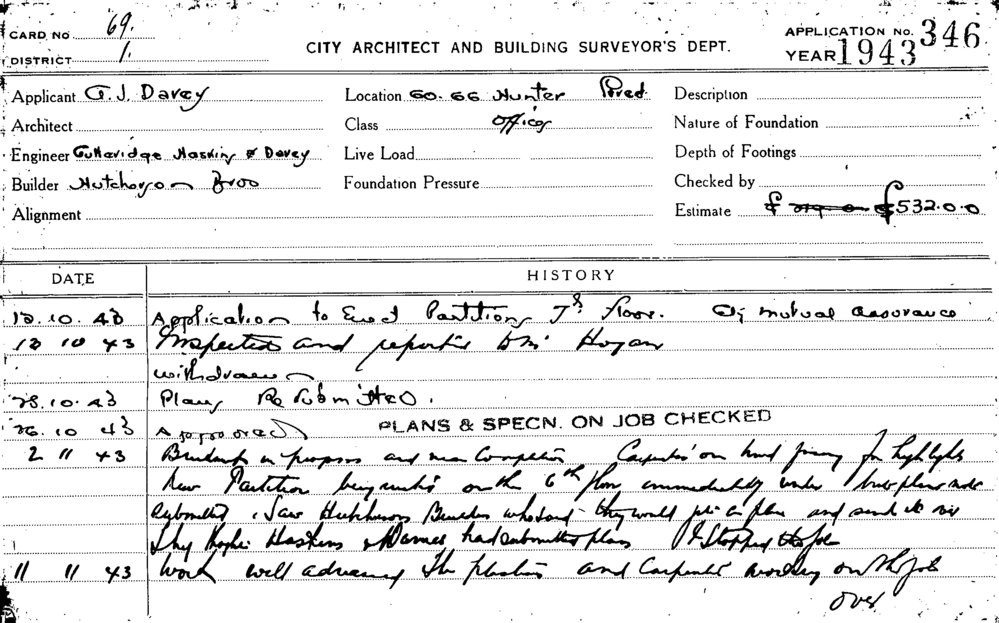 CARD No 69.
DISTRICT 1.
CITY ARCHITECT AND BUILDING SURVEYOR'S DEPT.
APPLICATION No. 346
YEAR 1943
Applicant G. J. Davey
Location 60.66 Hunter
Description
Architect
Class Offices
Nature of Foundation
Engineer Gutteridge Haskins & Davey
Live Load
Depth of Footings
Builder Hutcherson Bros
Foundation Pressure
Checked by
Alignment
Estimate £ £532.0.0
DATE
HISTORY
10.43 Application to Erect Partitions 7th floor. mutual assurance
10 43 Inspected and reported Hogan
withdrawn
10.43 Plans Resubmitted.
10 43 Approved PLANS & SPECN. ON JOB CHECKED
2 11 43 in progress and near Completion Carpenters on hand for highlights
New Partition being erected on the 6th floor immediately under
submitted. Saw Hutcherson Builders who said they would and send it
They Haskins & had submitted plans I Stopped the Job
11 11 43 Work well advanced The plasterers and Carpenters working on the job
over